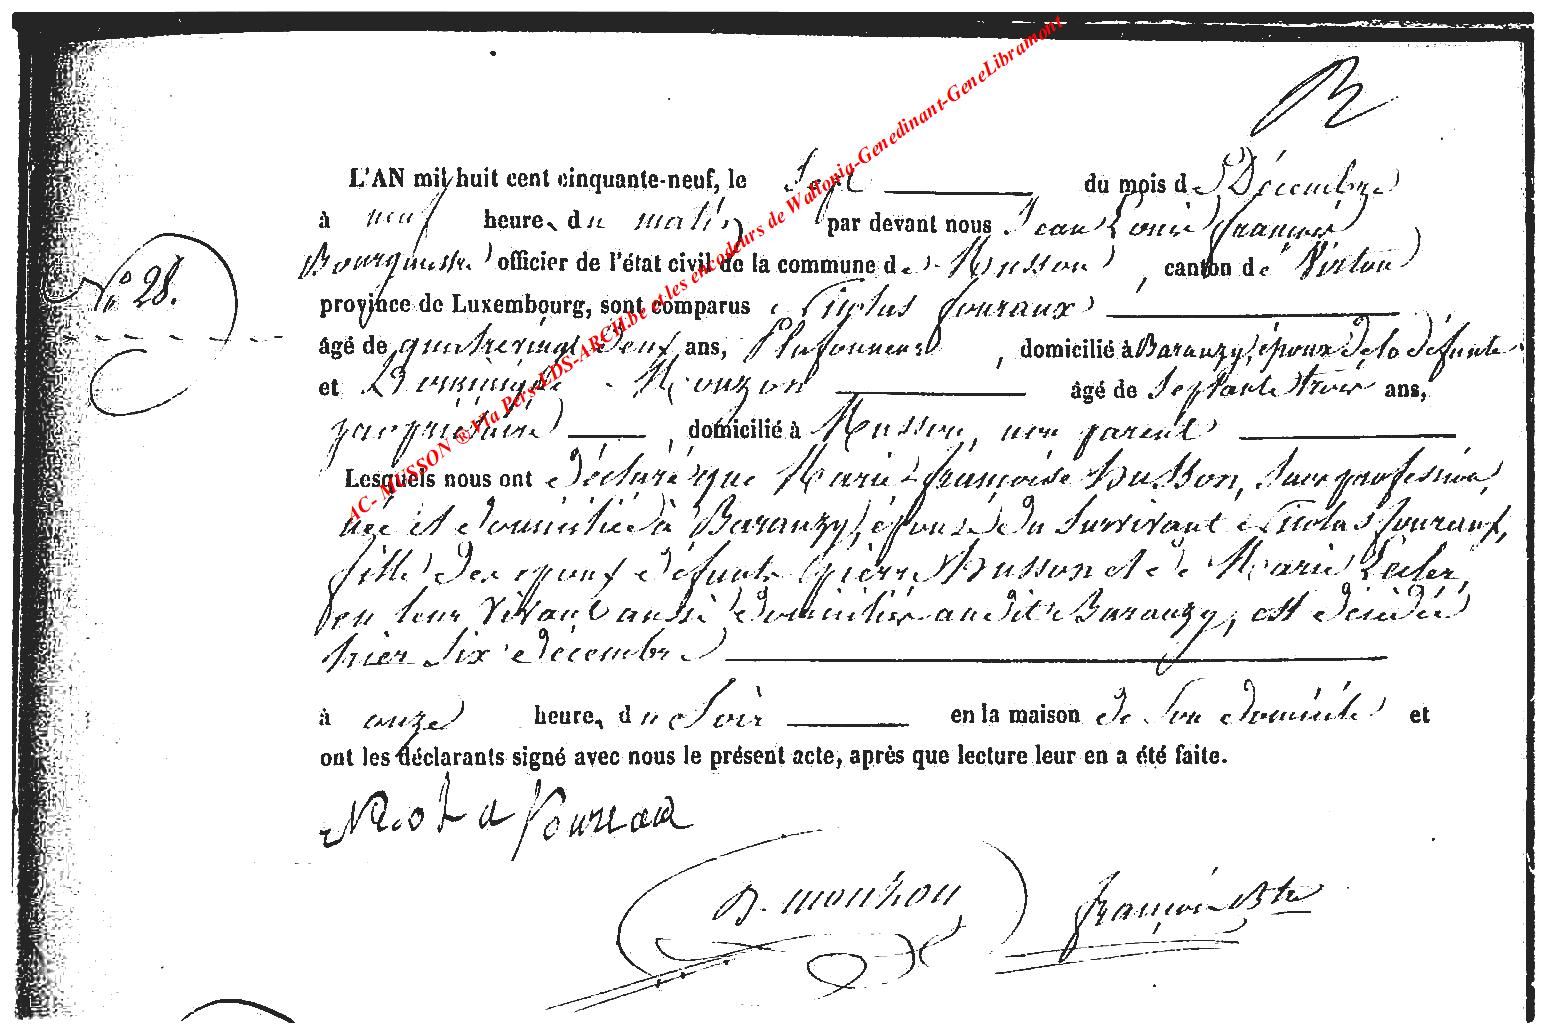 L'AN mil huit cent cinquante-neuf, le Sept du mois de Décembre
à neuf heure, du matin par devant nous Jean Louis François
Bourgmestre officier de l'état civil de la commune de Musson, canton de Virton
N° 28.
province de Luxembourg, sont comparus Nicolas Fouraux
âgé de quatrevingt deux ans, Plafonneur, domicilié à Baranzy, époux de la défunte
et Mouzon âgé de Septante trois ans,
propriétaire, domicilié à Musson, non parent
Lesquels nous ont déclaré que Marie Françoise Husson, sans profession,
née et domiciliée à Baranzy, épouse du survivant Nicolas Fouraux,
fille des époux défunts Pierre Husson et de Marie
en leur vivant aussi domiciliés audit Baranzy, est décédée
hier six décembre
à onze heure, du soir en la maison de son domicile et
ont les déclarants signé avec nous le présent acte, après que lecture leur en a été faite.
AC- MUSSON ® Via Pers-LDS-ARCH.be et les encodeurs de Wallonia-Genedinant-GeneLibramont
Nicola Foureau
D. mouzon François Btre